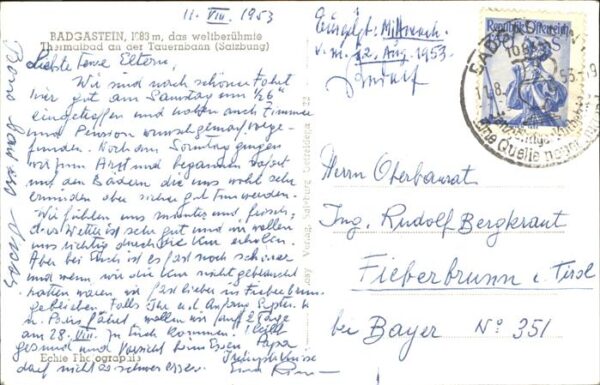 11. VIII. 1953
BADGASTEIN, 1083 m, das weltberühmte
Thermalbad an der Tauernbahn (Salzburg)
Liebste teure Eltern,
Wir sind nach schöner Fahrt
hier gut am Samstag um ½6h
eingetroffen und haben auch Zimmer
und Pension wunschgemäß vorge-
funden. Noch am Sonntag gingen
wir zum Arzt und begannen sofort
mit den Bädern die uns wohl sehr
ermüden aber sicher gut tun werden.
Wir fühlen uns munter und frisch,
das Wetter ist sehr gut und wir wollen
uns richtig durch die Kur erholen.
Aber bei Euch ist es fast noch schöner
und wenn wir die Kur nicht gebraucht
hätten wären wir fast lieber in Fieberbrunn
geblieben. Falls Ihr u.d. Anfang Sept. n.
n. fährt, wollen wir auf 2 Tage
am 28. VIII. zu Euch kommen.
gesund und Vorsicht beim Essen Papa
darf nicht es schwer essen.
Echte Photographie
Verlag, Salzburg
Eingelgt: Mittwoch
v. m. 12. Aug. 1953.
Rudolf
Republik Österreich
BADGASTEIN
11.8.53-19
Eine Quelle neuer
Herrn Oberbaurat
Ing. Rudolf Bergkraut
Fieberbrunn i. Tirol
bei Bayer No 351